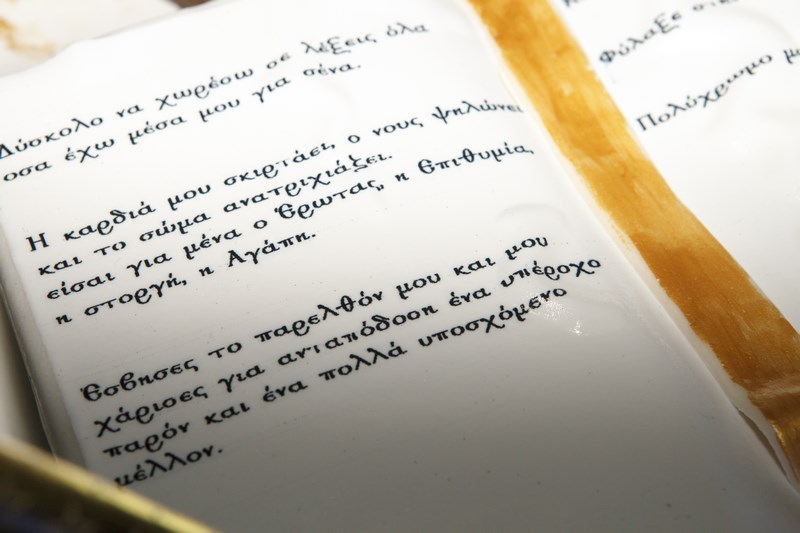 Δύσκολο να χωρέσω σε λέξεις όλα
οσα έχω μέσα μου για σένα.
Η καρδιά μου σκιρτάει, ο νους ψηλώνει
και το σώμα ανατριχιάζει.
είσαι για μένα ο Έρωτας, η Επιθυμία,
η στοργή, η Αγάπη.
Έσβησες το παρελθόν μου και μου
χάρισες για ανταπόδοση ένα υπέροχο
παρόν και ένα πολλά υποσχόμενο
μέλλον.
Φύλαξε
Πολύχρωμο